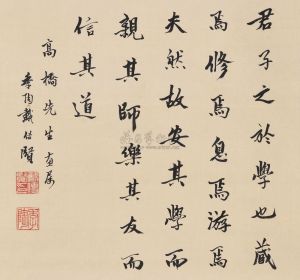 君子之於學也藏
焉修焉息焉游焉
夫然故安其學而
親其師樂其友而
信其道
高橋先生直屬
季陶戴传賢